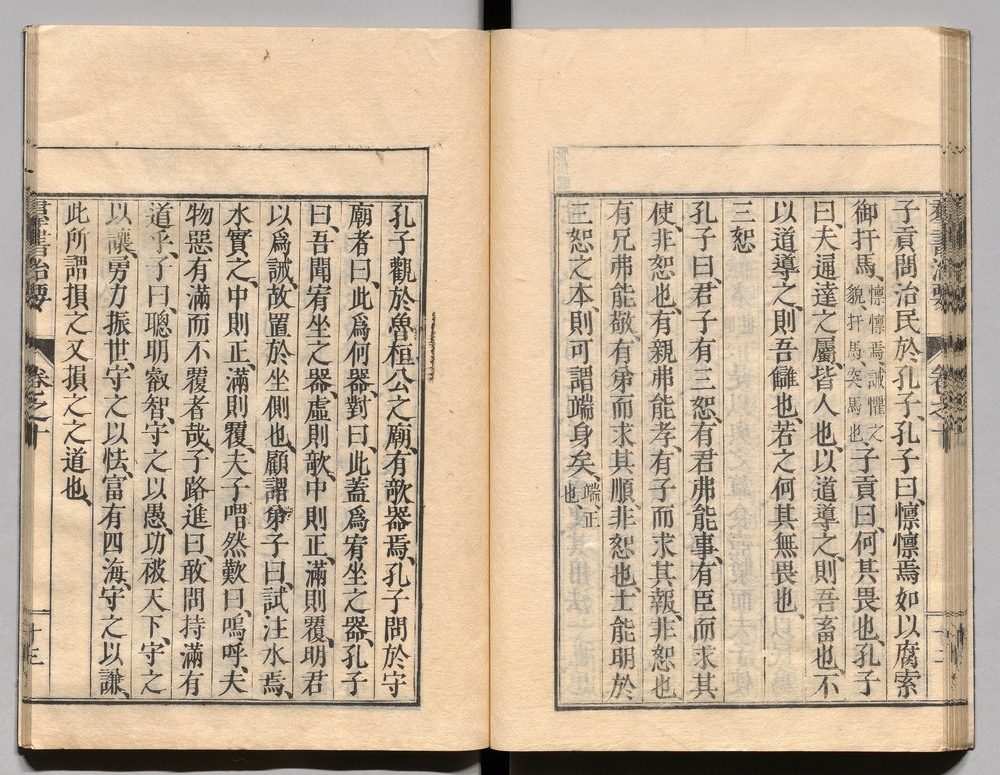 子貢問治民於孔子、孔子曰、懍懍焉如以腐索
御扞馬、懍懍焉、誡懼之貌、扞馬突馬也、子貢曰、何其畏也、孔子
曰、夫通達之屬、皆人也、以道導之、則吾畜也、不
以道導之、則吾讎也、若之何其無畏也、
三恕
孔子曰、君子有三恕、有君弗能事、有臣而求其
使、非恕也、有親弗能孝、有子而求其報、非恕也、
有兄弗能敬、有弟而求其順、非恕也、士能明於
三恕之本、則可謂端身矣、端、正也、
孔子觀於魯桓公之廟、有欹器焉、孔子問於守
廟者曰、此爲何器、對曰、此蓋爲宥坐之器、孔子
曰、吾聞宥坐之器、虛則欹、中則正、滿則覆、明君
以爲誡、故置於坐側也、顧謂弟子曰、試注水焉、
水實之、中則正、滿則覆、夫子喟然歎曰、嗚呼、夫
物惡有滿而不覆者哉、子路進曰、敢問持滿有
道乎、子曰、聰明叡智、守之以愚、功被天下、守之
以讓、勇力振世、守之以怯、富有四海、守之以謙、
此所謂損之又損之之道也、
羣書治要
卷之十
十三